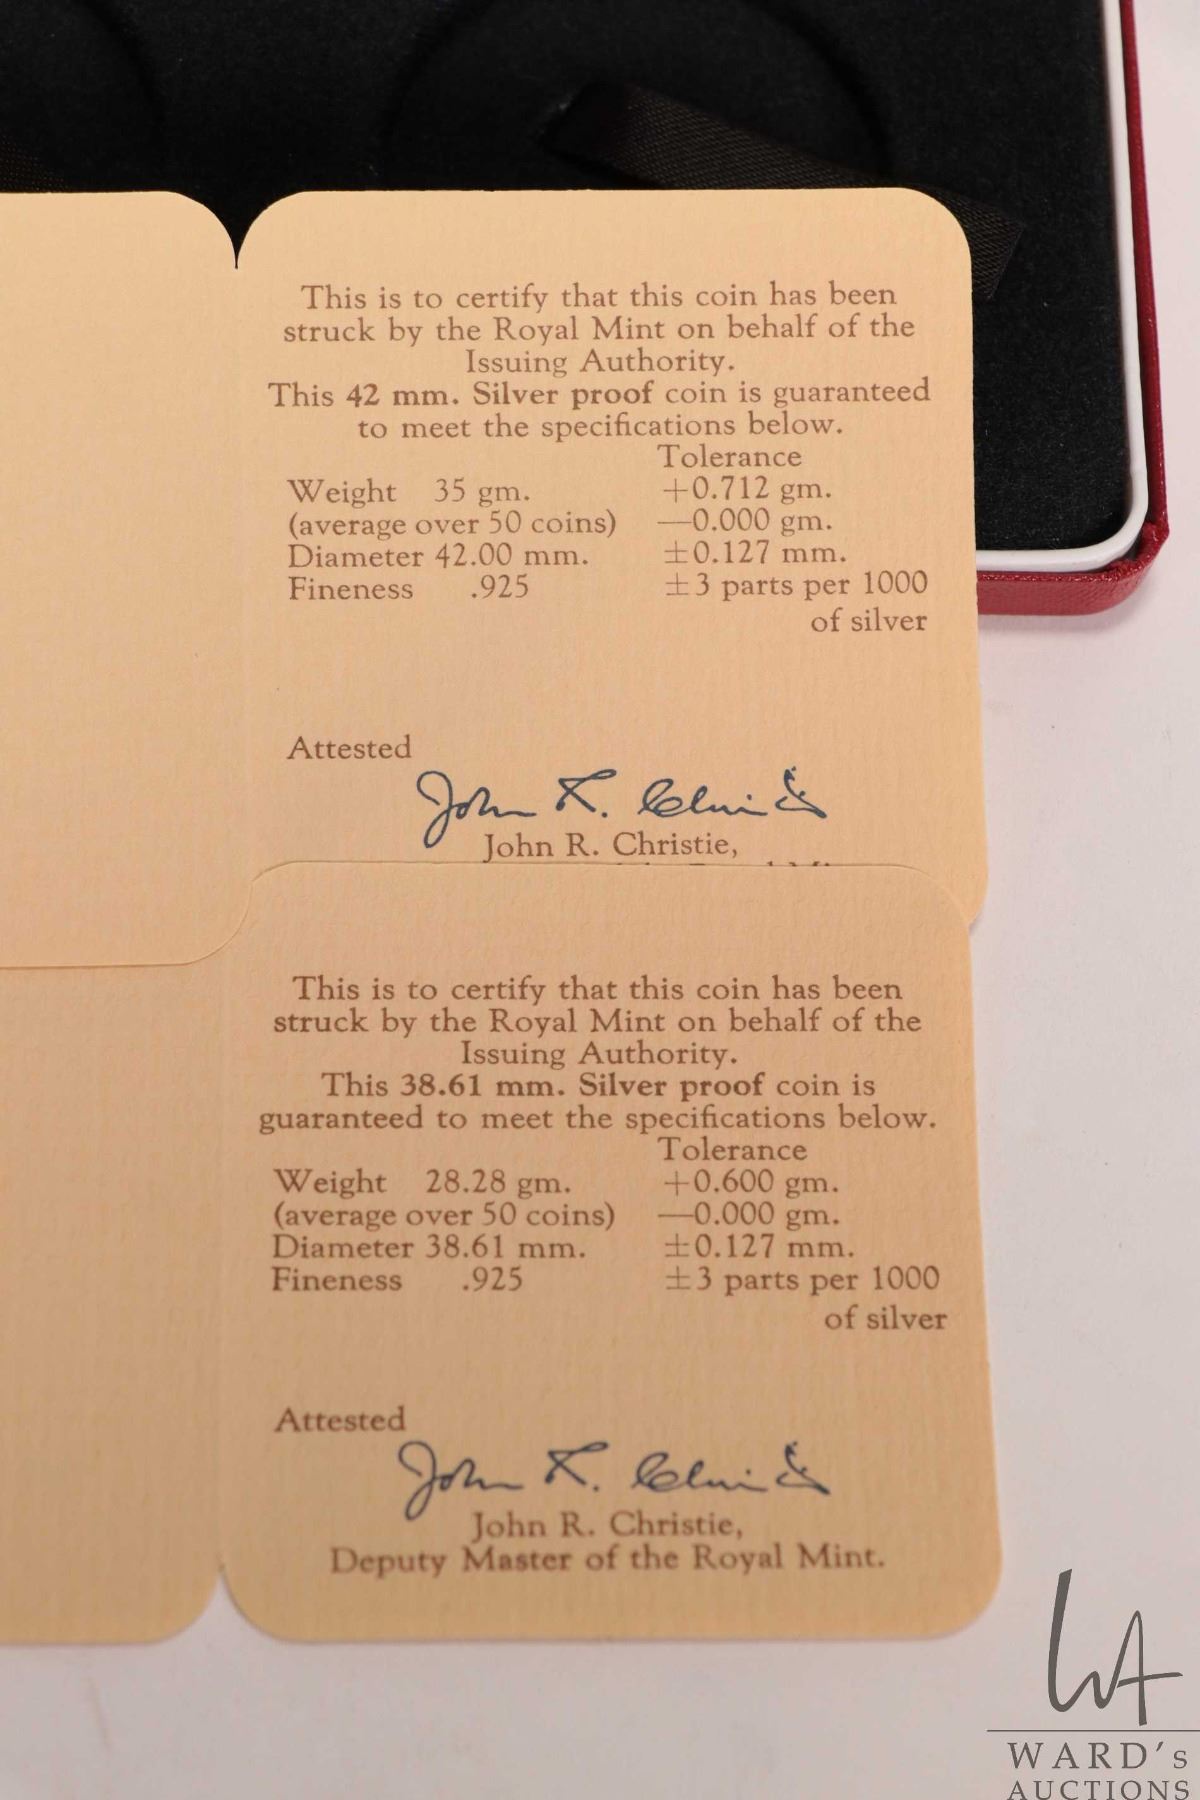 This is to certify that this coin has been
struck by the Royal Mint on behalf of the
Issuing Authority.
This 42 mm. Silver proof coin is guaranteed
to meet the specifications below.
Tolerance
Weight 35 gm. +0.712 gm.
(average over 50 coins) —0.000 gm.
Diameter 42.00 mm. ±0.127 mm.
Fineness .925 ±3 parts per 1000
of silver
Attested
John R. Christie
John R. Christie,
This is to certify that this coin has been
struck by the Royal Mint on behalf of the
Issuing Authority.
This 38.61 mm. Silver proof coin is
guaranteed to meet the specifications below.
Tolerance
Weight 28.28 gm. +0.600 gm.
(average over 50 coins) —0.000 gm.
Diameter 38.61 mm. ±0.127 mm.
Fineness .925 ±3 parts per 1000
of silver
Attested
John R. Christie
John R. Christie,
Deputy Master of the Royal Mint.
WA
WARD's
AUCTIONS